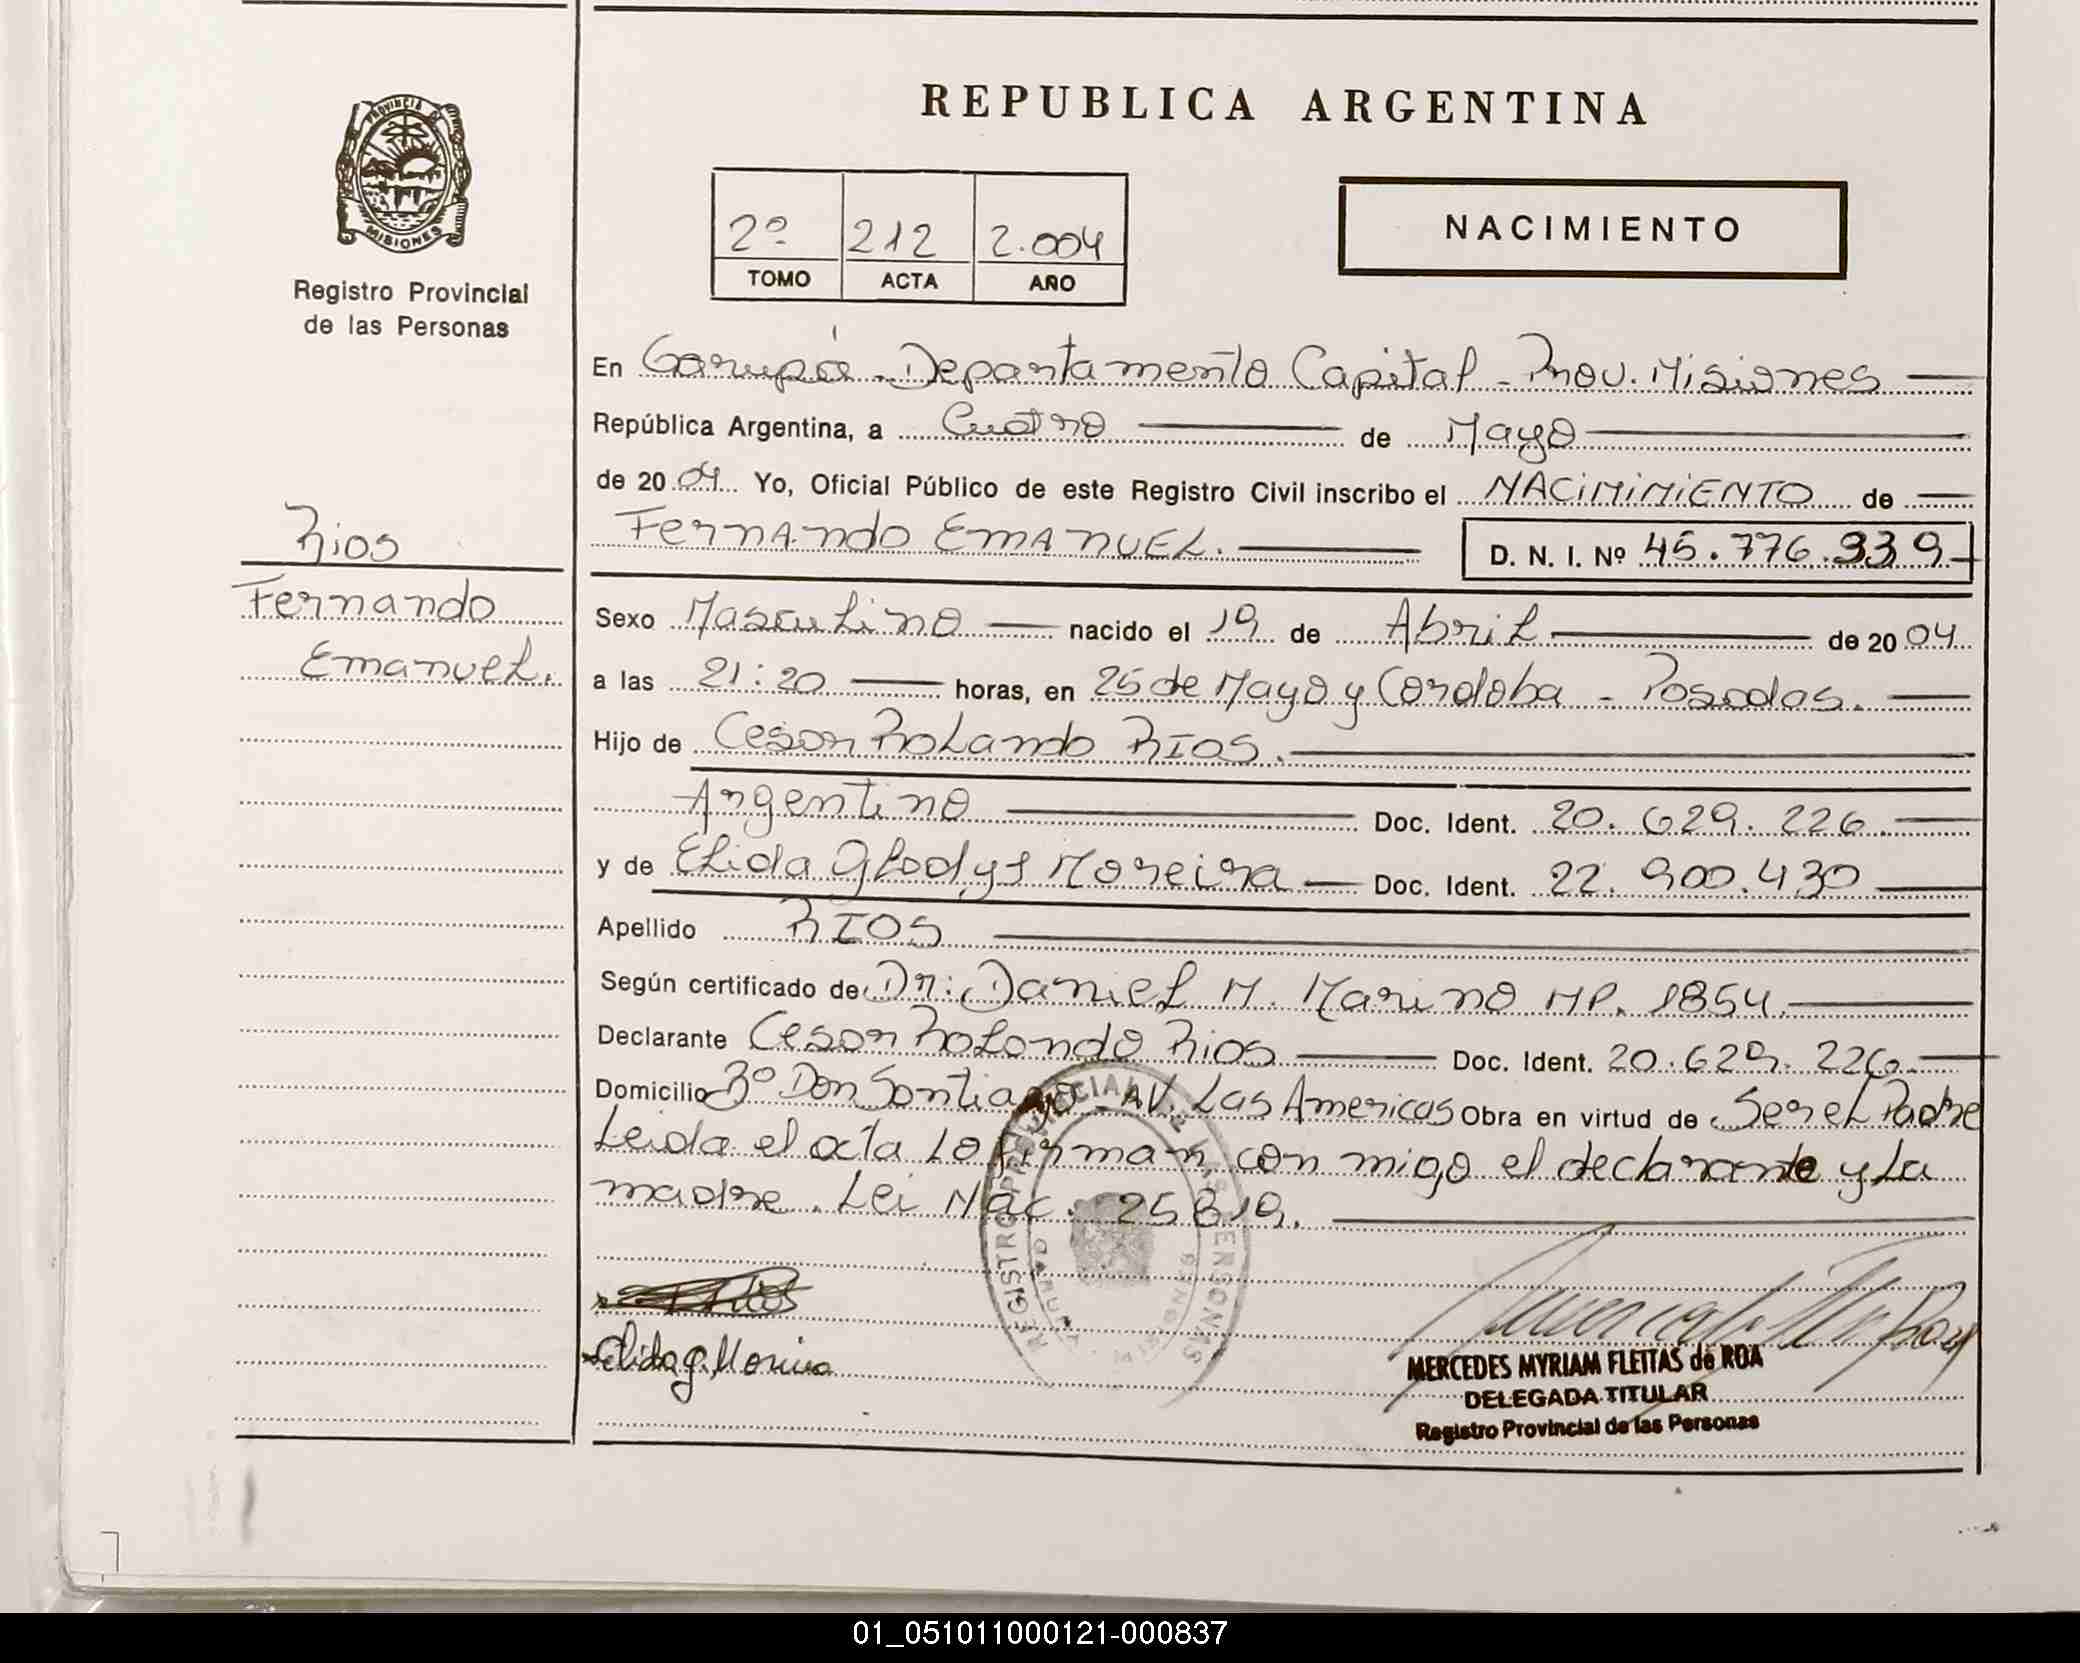 PROVINCIA DE
MISIONES
Registro Provincial
de las Personas
Rios
Fernando
Emanuel.
REPUBLICA ARGENTINA
2º 212 2.004
TOMO ACTA AÑO
NACIMIENTO
En Garupá - Departamento Capital - Prov. Misiones
República Argentina, a Cuatro de Mayo
de 2004 Yo, Oficial Público de este Registro Civil inscribo el NACIMIMIENTO de
Fernando EMANUEL. D. N. I. Nº 45.776.339
Sexo Masculino nacido el 19 de Abril de 2004
a las 21:20 horas, en 25 de Mayo y Cordoba - Posadas.
Hijo de Cesar Rolando RIOS.
Argentino Doc. Ident. 20.629.226.
y de Elida Gladys Moreira Doc. Ident. 22.900.430
Apellido RIOS
Según certificado de Dr: Daniel M. Marino MP. 1854.
Declarante Cesar Rolando Rios Doc. Ident. 20.629.226.
Domicilio Bº Don Santiago - AV. Las Americas Obra en virtud de Ser el Padre
Leida el acta lo firman con migo el declarante y la
madre. Lei Nac. 25819.
REGISTRO PROVINCIAL DE LAS PERSONAS
Elida g. Moreira
MERCEDES MYRIAM FLEITAS de ROA
DELEGADA TITULAR
Registro Provincial de las Personas
01_051011000121-000837